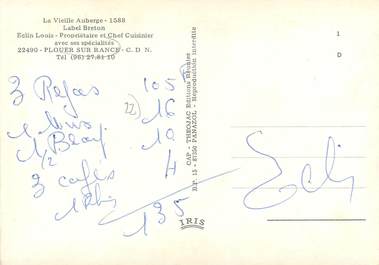 La Vieille Auberge - 1588
Label Breton
Eslin Louis - Propriétaire et Chef Cuisinier
avec ses spécialités
22490 - PLOUER SUR RANCE - C. D. N.
Tél (96) 27.81.10
3 Repas 105 F
1 16
1/2 Beauj 19
3 cafés 4
135
22
CAP - THEOJAC Editions
Reproduction interdite
B.P. 15 - 87350 PANAZOL
IRIS
1
D